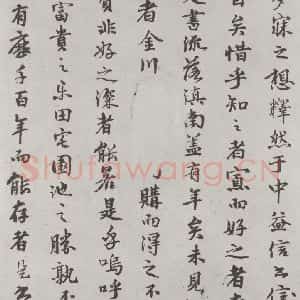 寐之想釋然於中益信
矣惜乎知之者寡而好之者
書流落滇南蓋有年矣未見
者金川 購而得之不
非好之深者能若是乎嗚呼
富貴之樂田宅園池之勝孰不
有歷千百年而能存者
Shufawang.CN